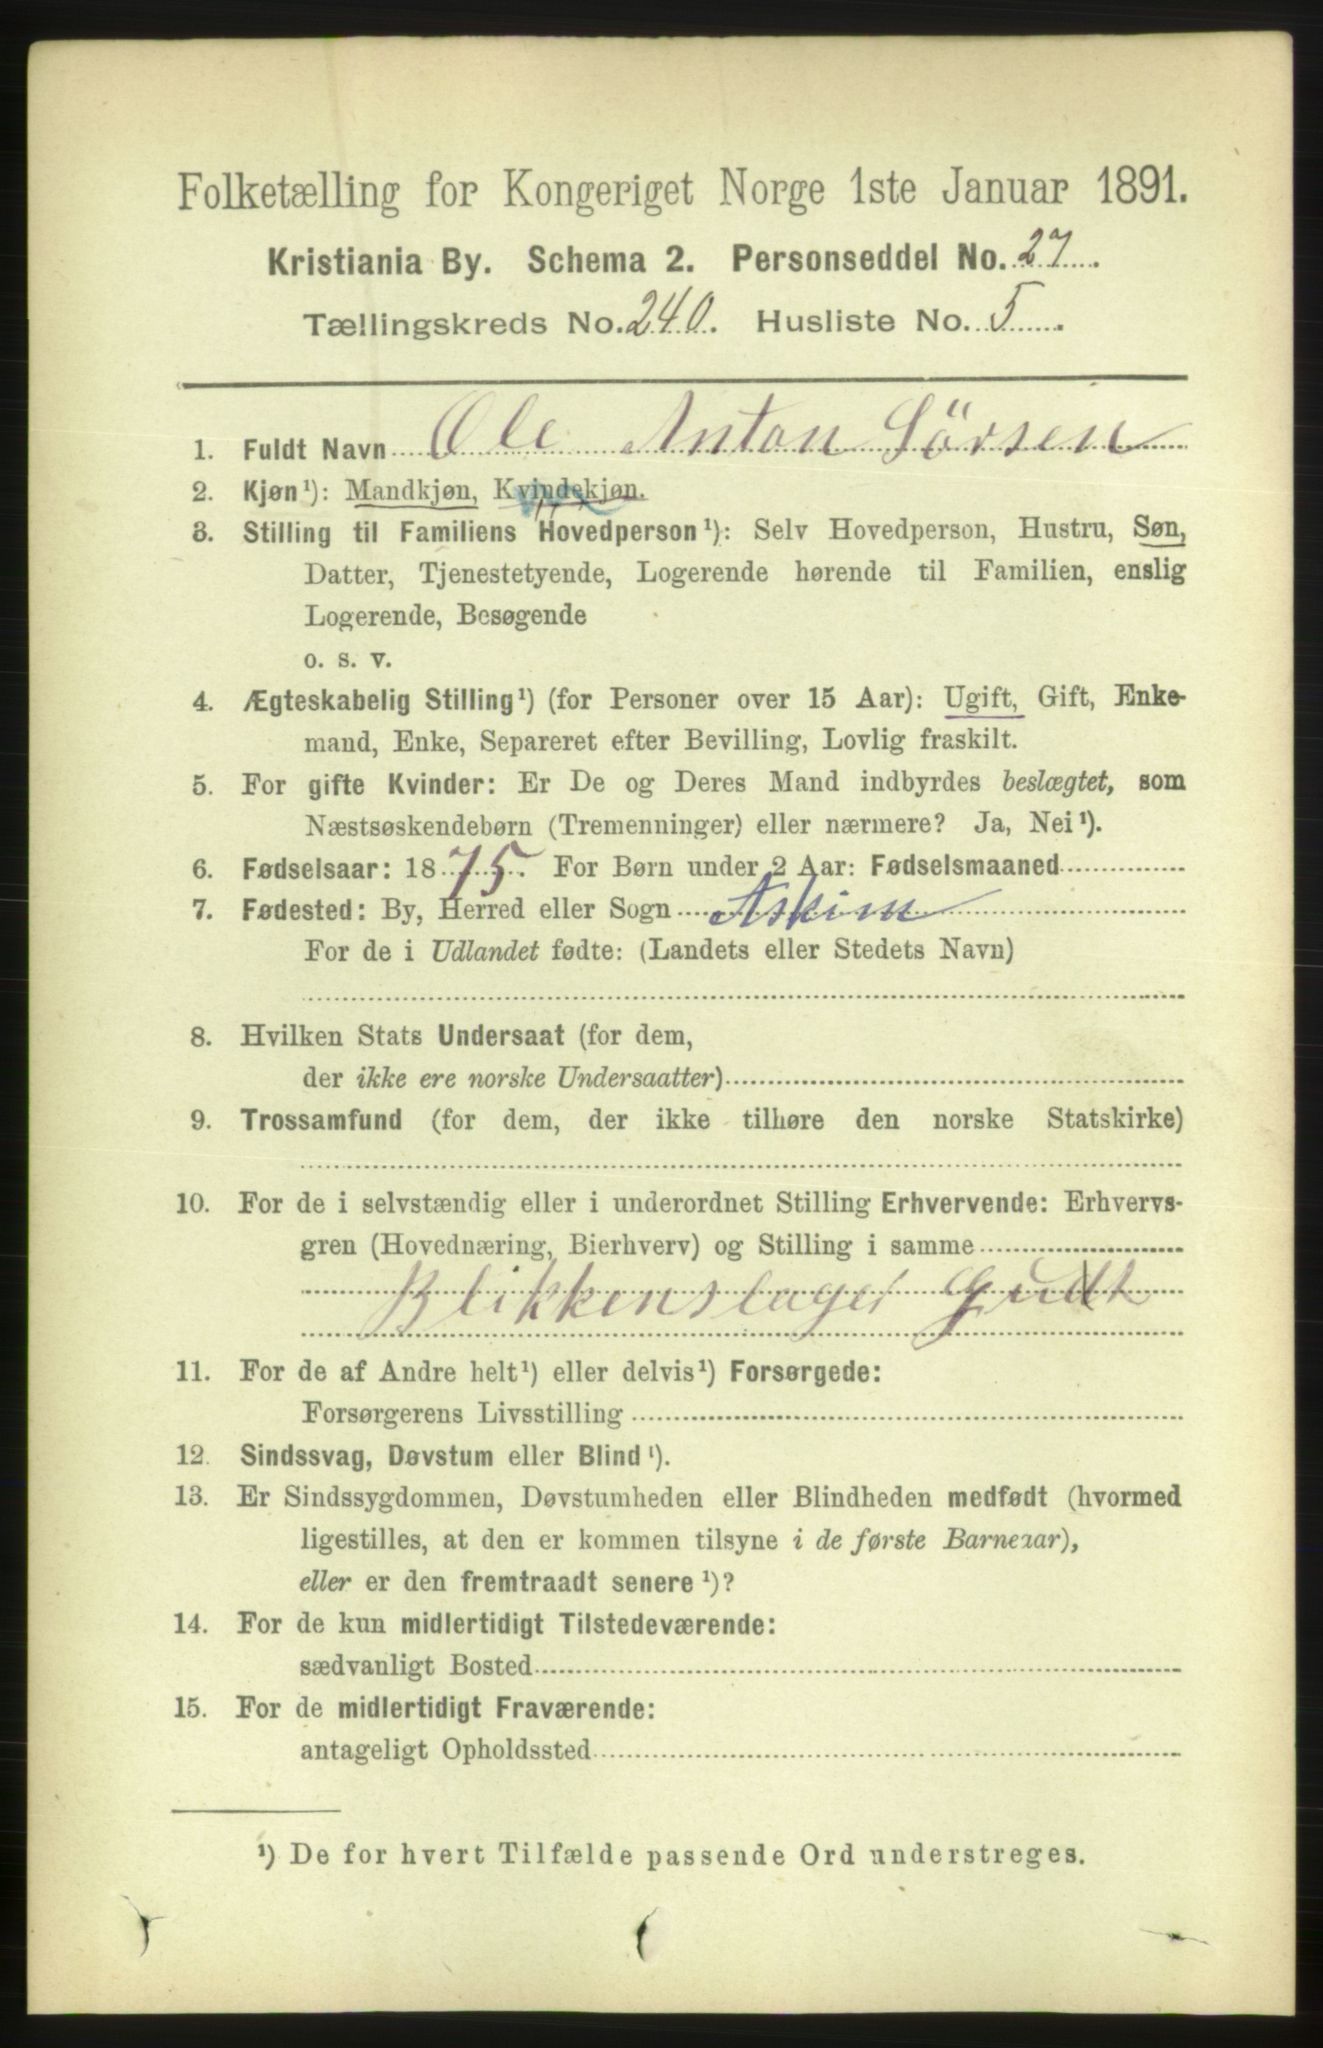 Folketælling for Kongeriget Norge 1ste Januar 1891.
Kristiania By. Schema 2. Personseddel No. 27.
Tællingskreds No. 240. Husliste No. 5.
1. Fuldt Navn Ole Anton Sörsen
2. Kjøn¹): Mandkjøn, Kvindekjøn.
3. Stilling til Familiens Hovedperson¹): Selv Hovedperson, Hustru, Søn,
Datter, Tjenestetyende, Logerende hørende til Familien, enslig
Logerende, Besøgende
o. s. v.
4. Ægteskabelig Stilling¹) (for Personer over 15 Aar): Ugift, Gift, Enke-
mand, Enke, Separeret efter Bevilling, Lovlig fraskilt.
5. For gifte Kvinder: Er De og Deres Mand indbyrdes beslægtet, som
Næstsøskendebørn (Tremenninger) eller nærmere? Ja, Nei¹).
6. Fødselsaar: 1875. For Børn under 2 Aar: Fødselsmaaned
7. Fødested: By, Herred eller Sogn Askim
For de i Udlandet fødte: (Landets eller Stedets Navn)
8. Hvilken Stats Undersaat (for dem,
der ikke ere norske Undersaatter)
9. Trossamfund (for dem, der ikke tilhøre den norske Statskirke)
10. For de i selvstændig eller i underordnet Stilling Erhvervende: Erhvervs-
gren (Hovednæring, Bierhverv) og Stilling i samme
Blikkenslager
11. For de af Andre helt¹) eller delvis¹) Forsørgede:
Forsørgerens Livsstilling
12. Sindssvag, Døvstum eller Blind¹).
13. Er Sindssygdommen, Døvstumheden eller Blindheden medfødt (hvormed
ligestilles, at den er kommen tilsyne i de første Barneaar),
eller er den fremtraadt senere¹)?
14. For de kun midlertidigt Tilstedeværende:
sædvanligt Bosted
15. For de midlertidigt Fraværende:
antageligt Opholdssted
¹) De for hvert Tilfælde passende Ord understreges.